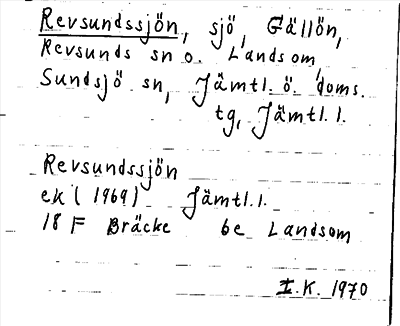 Revsundssjön, sjö, Gällön,
Revsunds sn o. Landsom,
Sundsjö sn, Jämtl. ö. doms.
tg, Jämtl. l.
Revsundssjön
ek (1969) Jämtl. l.
18 F Bräcke be Landsom
I.K. 1970